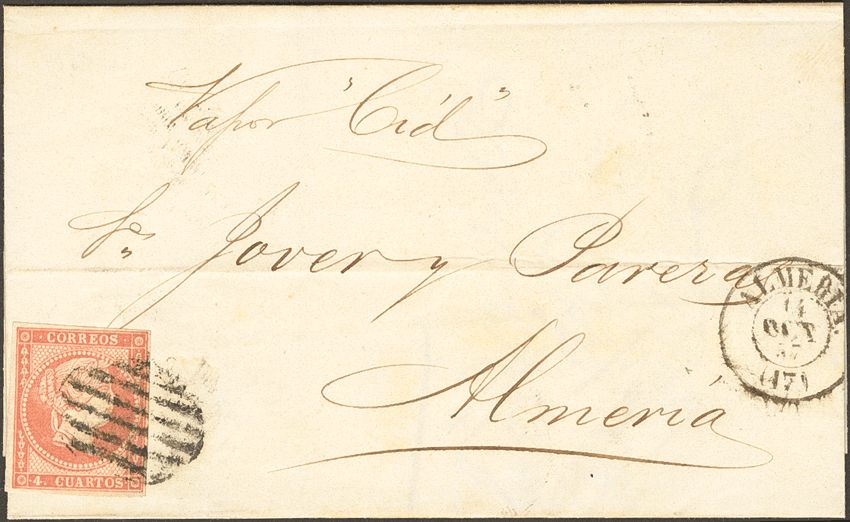 Vapor "Cid"
Sres Jover y Parera
Almería
CORREOS
4. CUARTOS
ALMERIA.
14
OCT
57
(17)